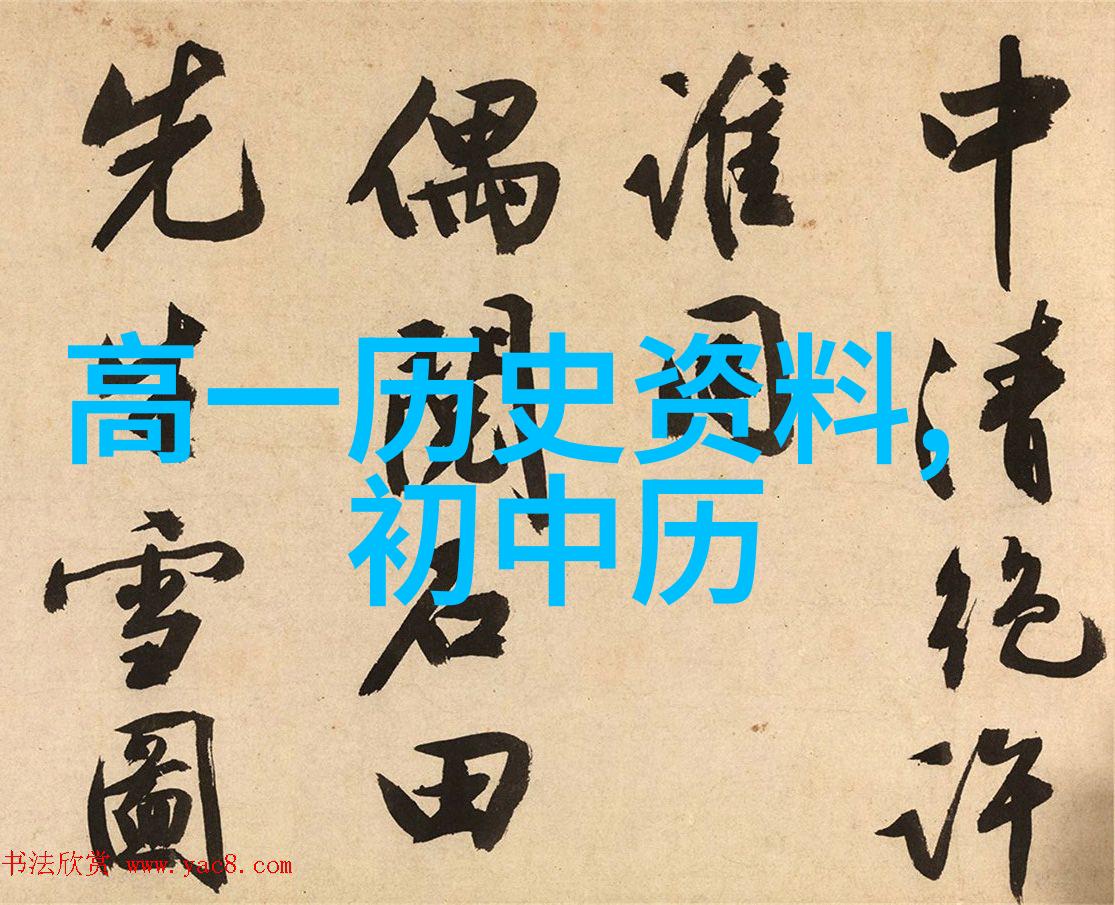 高一历史资料,
初中历
中清絶許
誰同
偶閱石田
先生雪圖
书法欣赏 www.yac8.com